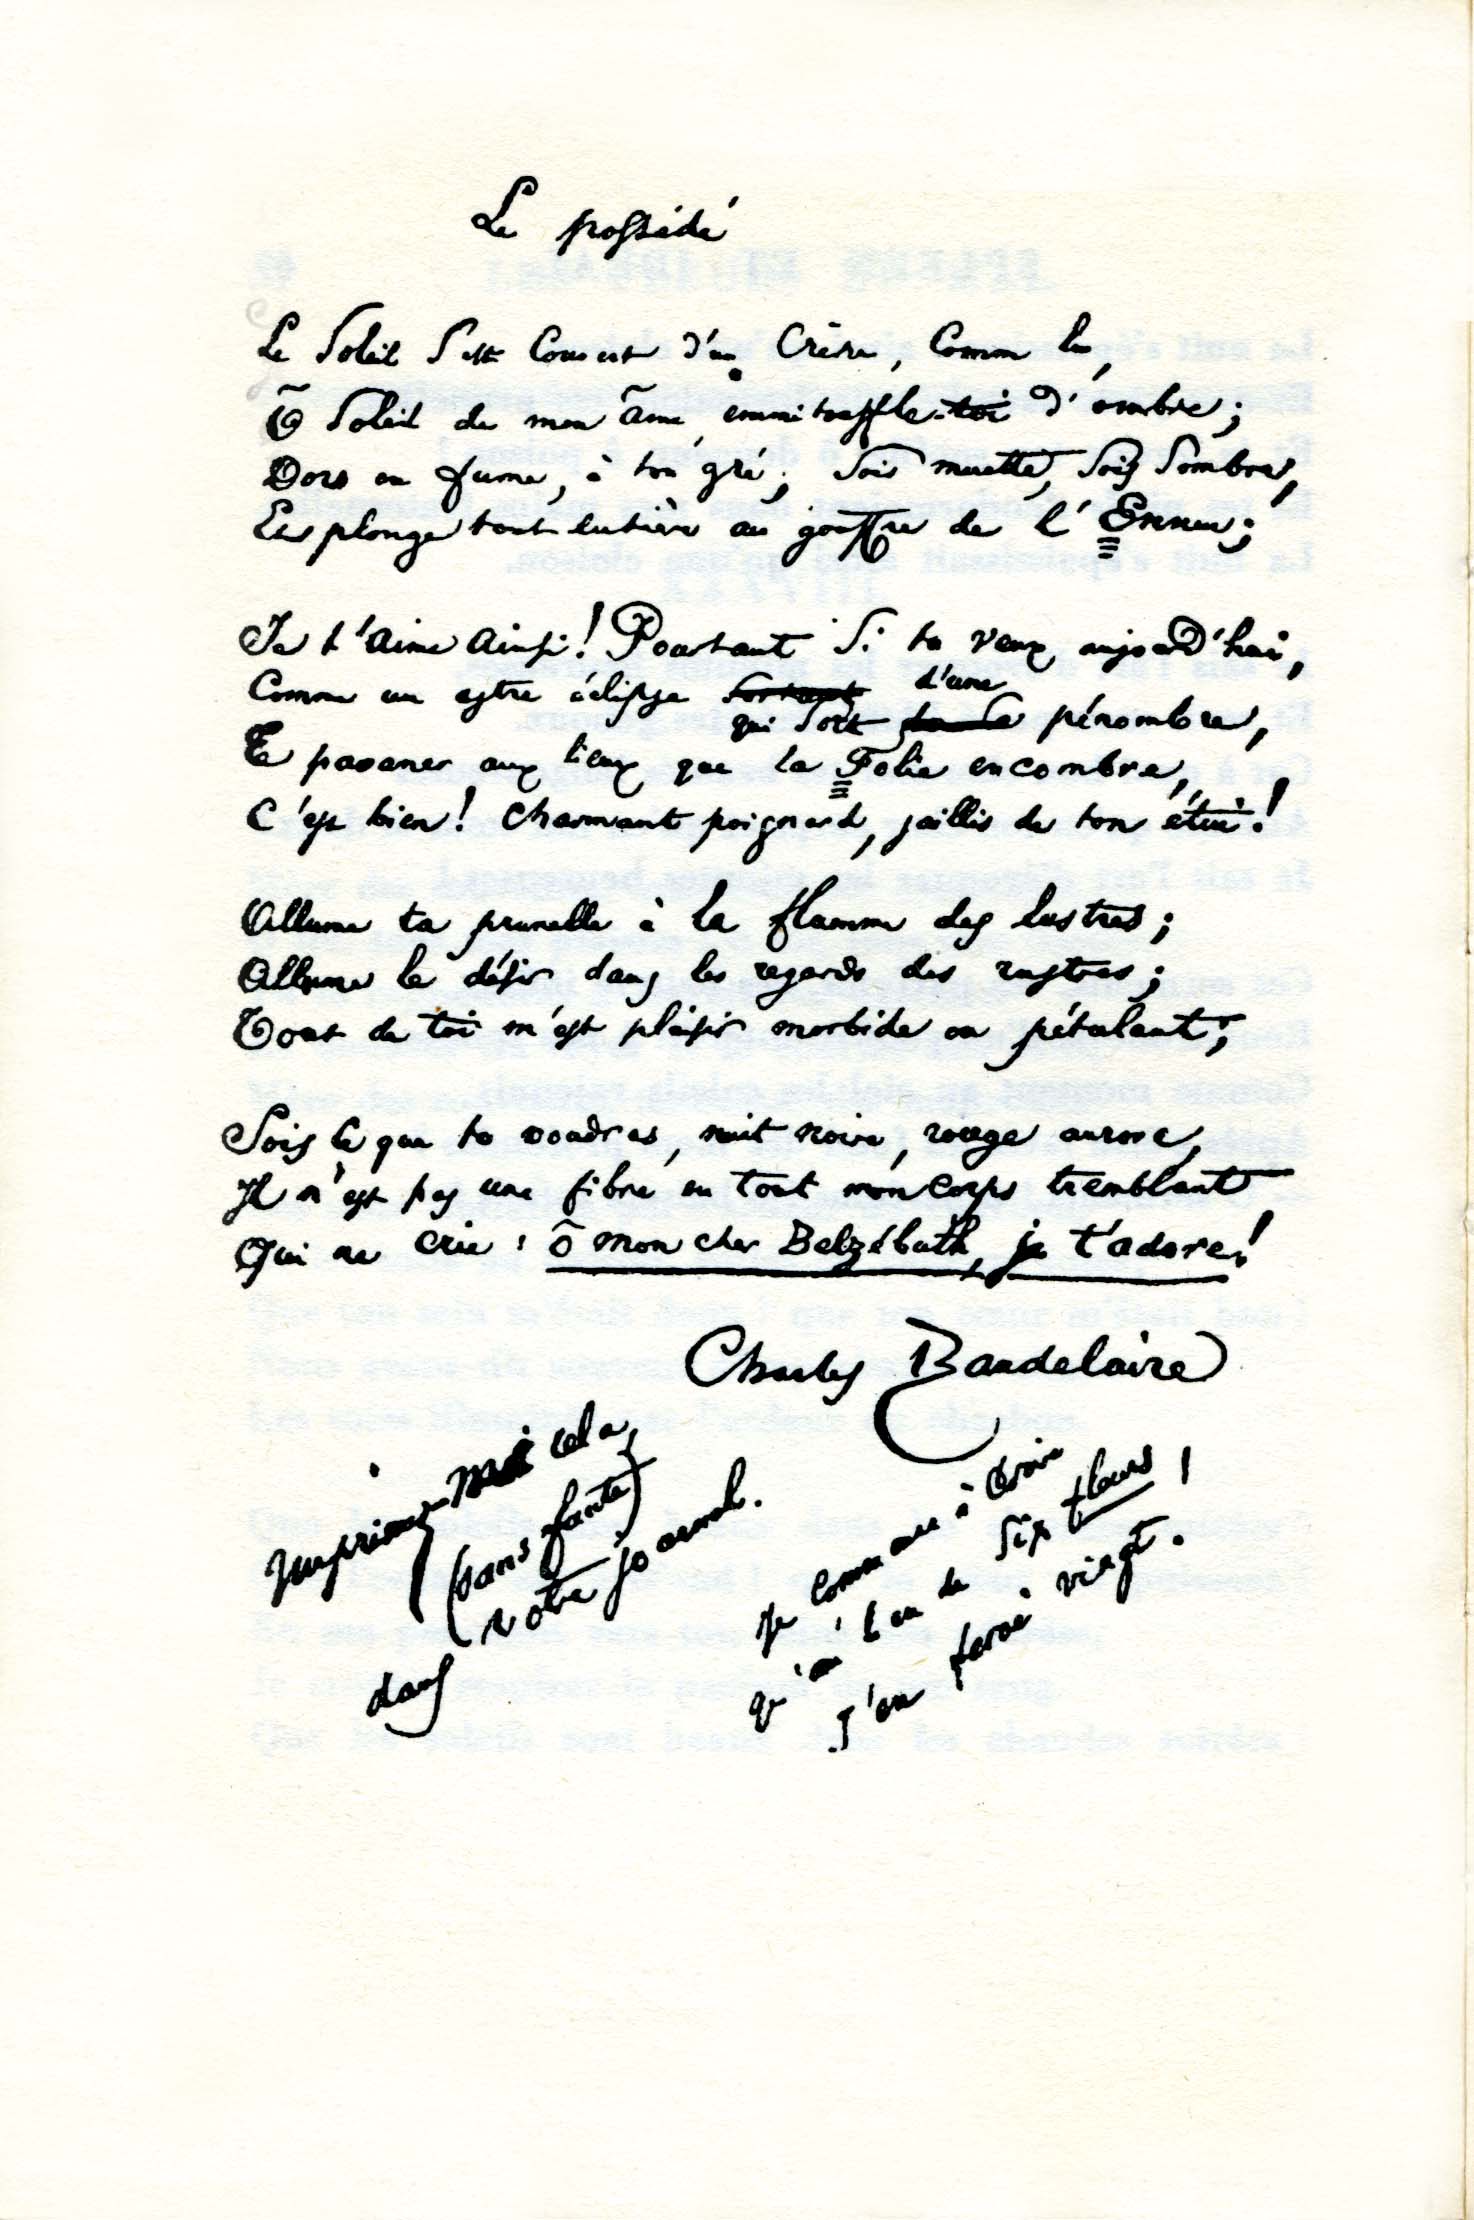 Le possédé
Le Soleil s'est couvert d'un Crêpe, Comme lui,
Ô Soleil de mon âme, emmitouffle-toi d'ombre;
Dors ou fume, à ton gré; sois muette, sois sombre,
Et plonge tout entière au gouffre de l'Ennui;
Je t'aime ainsi! Pourtant si tu veux aujourd'hui,
Comme un astre éclipsé sortant d'une
qui sort de la pénombre,
Te pavaner aux lieux que la Folie encombre,
C'est bien! Charmant poignard, jaillis de ton étui!
Allume ta prunelle à la flamme des lustres;
Allume le désir dans les regards des rustres;
Tout de toi m'est plaisir morbide ou pétulant;
Sois ce que tu voudras, nuit noire, rouge aurore,
Il n'est pas une fibre en tout mon corps tremblant
Qui ne crie: ô mon cher Belzébuth, je t'adore!
Charles Baudelaire
Imprimez-moi cela,
(sans faute)
dans notre journal.
Je commence à croire
qu'au lieu de six fleurs,
j'en ferai vingt.